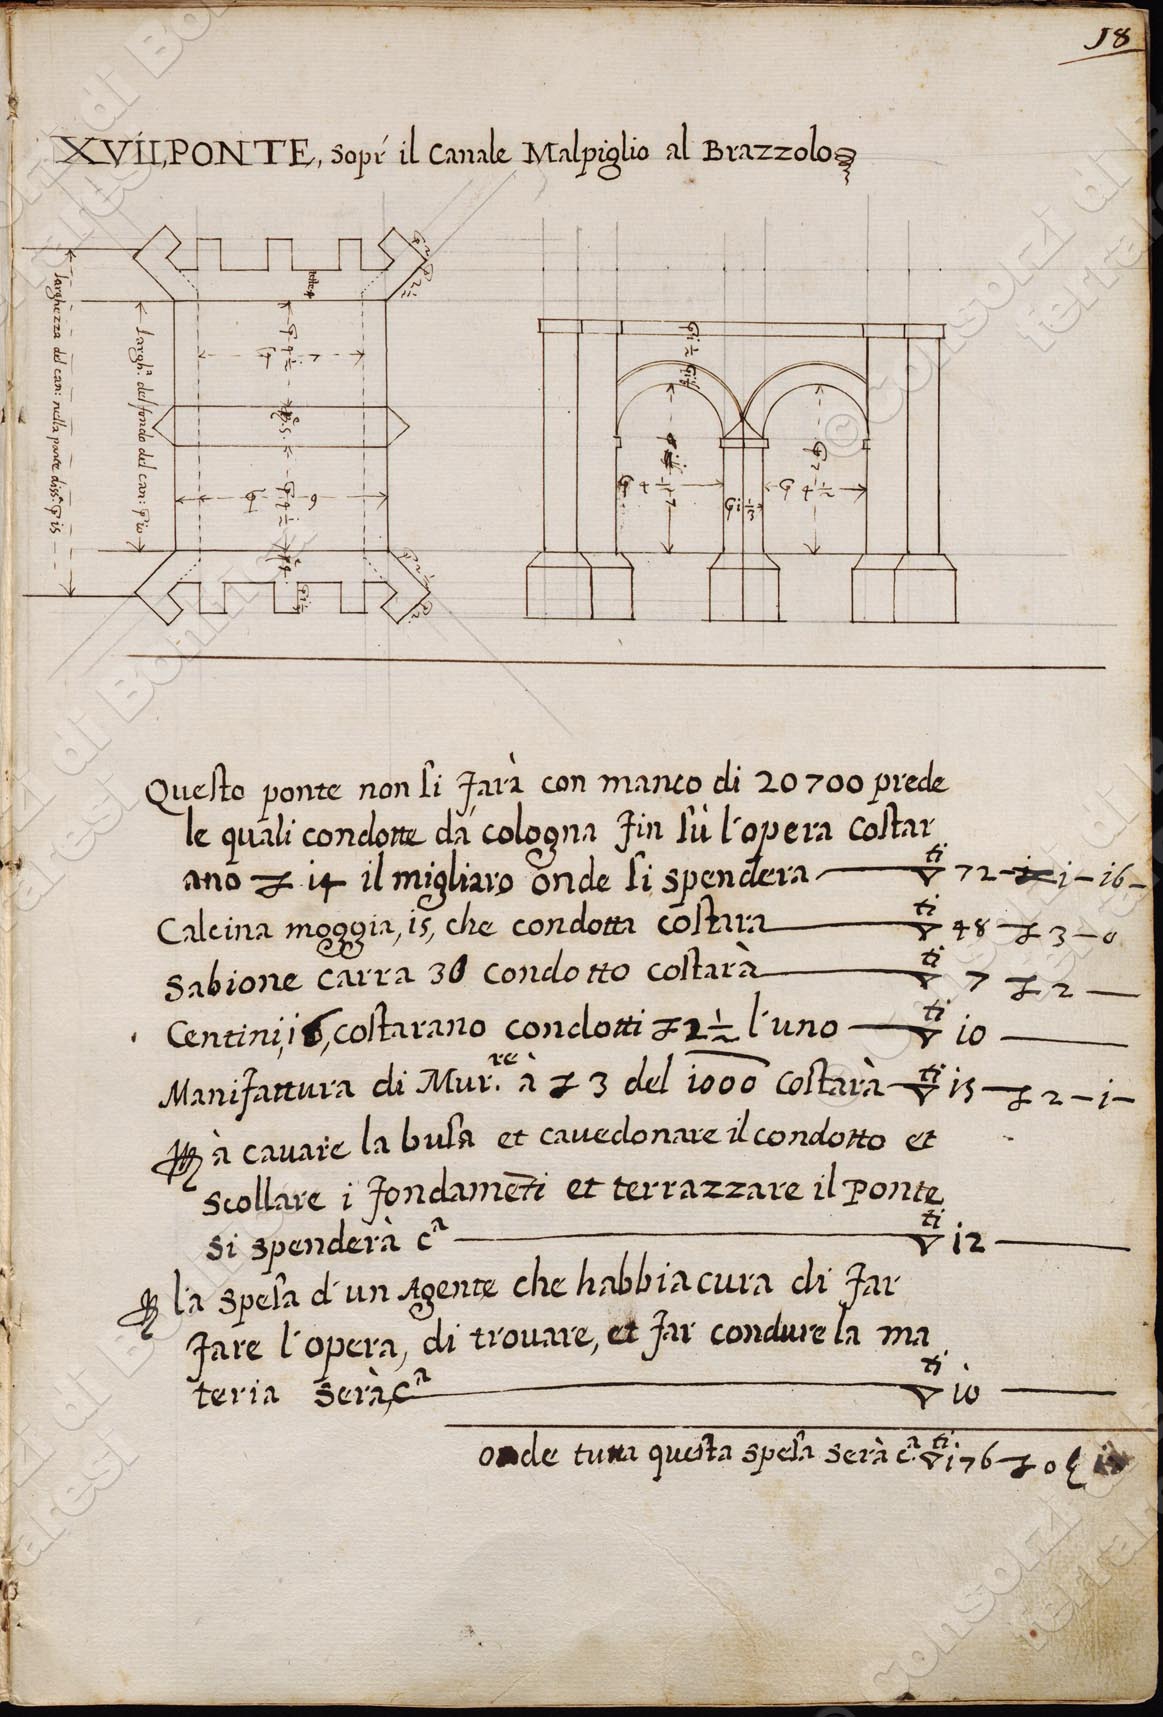 18
XVII, PONTE, sopr il Canale Malpiglio al Brazzolo
larghezza del can: nella parte diss.ª p 15
largh.ª del fondo del can: p 10
p 4 1/2
p 7
p 4 1/2
p 9
p 1 1/2
p 4 1/2
p 7
p 1 1/3
p 4 1/2
Questo ponte non si farà con manco di 20700 prede
le quali condotte da cologna fin sù l'opera costar
ano £ 14 il migliaro onde si spendera ti ▽ 72 - 1 - 16 -
Calcina moggia, 15, che condotta costara ti ▽ 48 £ 3 - 0
Sabione carra 30 condotto costarà ti ▽ 7 £ 2 —
Centini, 16, costarano condotti £ 2 1/2 l'uno ti ▽ 10 —
Manifattura di Mur.re à £ 3 del 1000 costarà ti ▽ 15 £ 2 - 1 -
à cavare la busa et cavedonare il condotto et
scollare i fondameti et terrazzare il ponte
si spenderà cª ti ▽ 12 —
la spesa d'un Agente che habbia cura di far
fare l'opera, di trovare, et far condure la ma
teria serà, cª ti ▽ 10 —
onde tutta questa spesa serà c.ª ti ▽ 176 £ 0
© consorzi di Bonifica
ferraresi